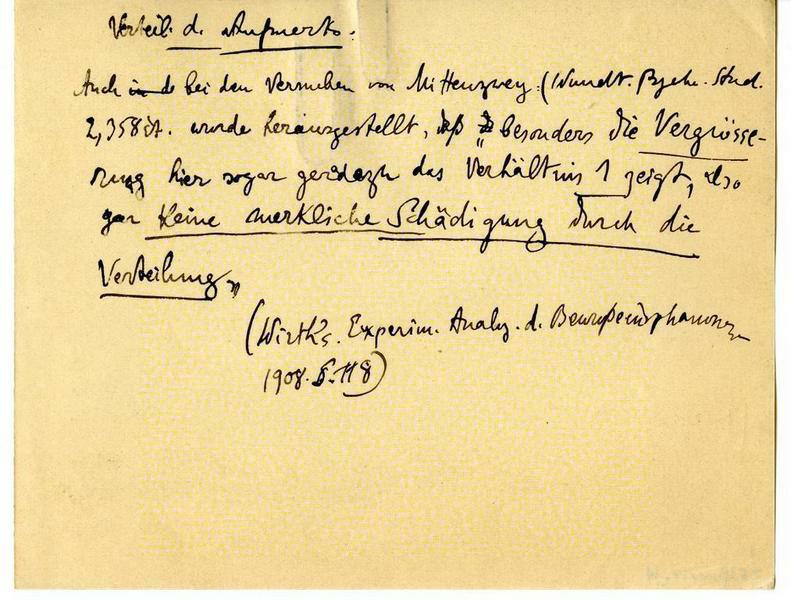 Verteil. d. Aufmerks.
Auch in de bei den Versuchen von Mittenzwey (Wundt. Psych. Stud.
2, 358 ff. wurde herausgestellt, daß „besonders die Vergrösse-
rung hier sogar geradezu das Verhältnis 1 zeigt, also
gar keine merkliche Schädigung durch die
Verteilung„
(Wirth's. Experim. Analy. d. Bewußtseinsphänomene
1908. S. 118)